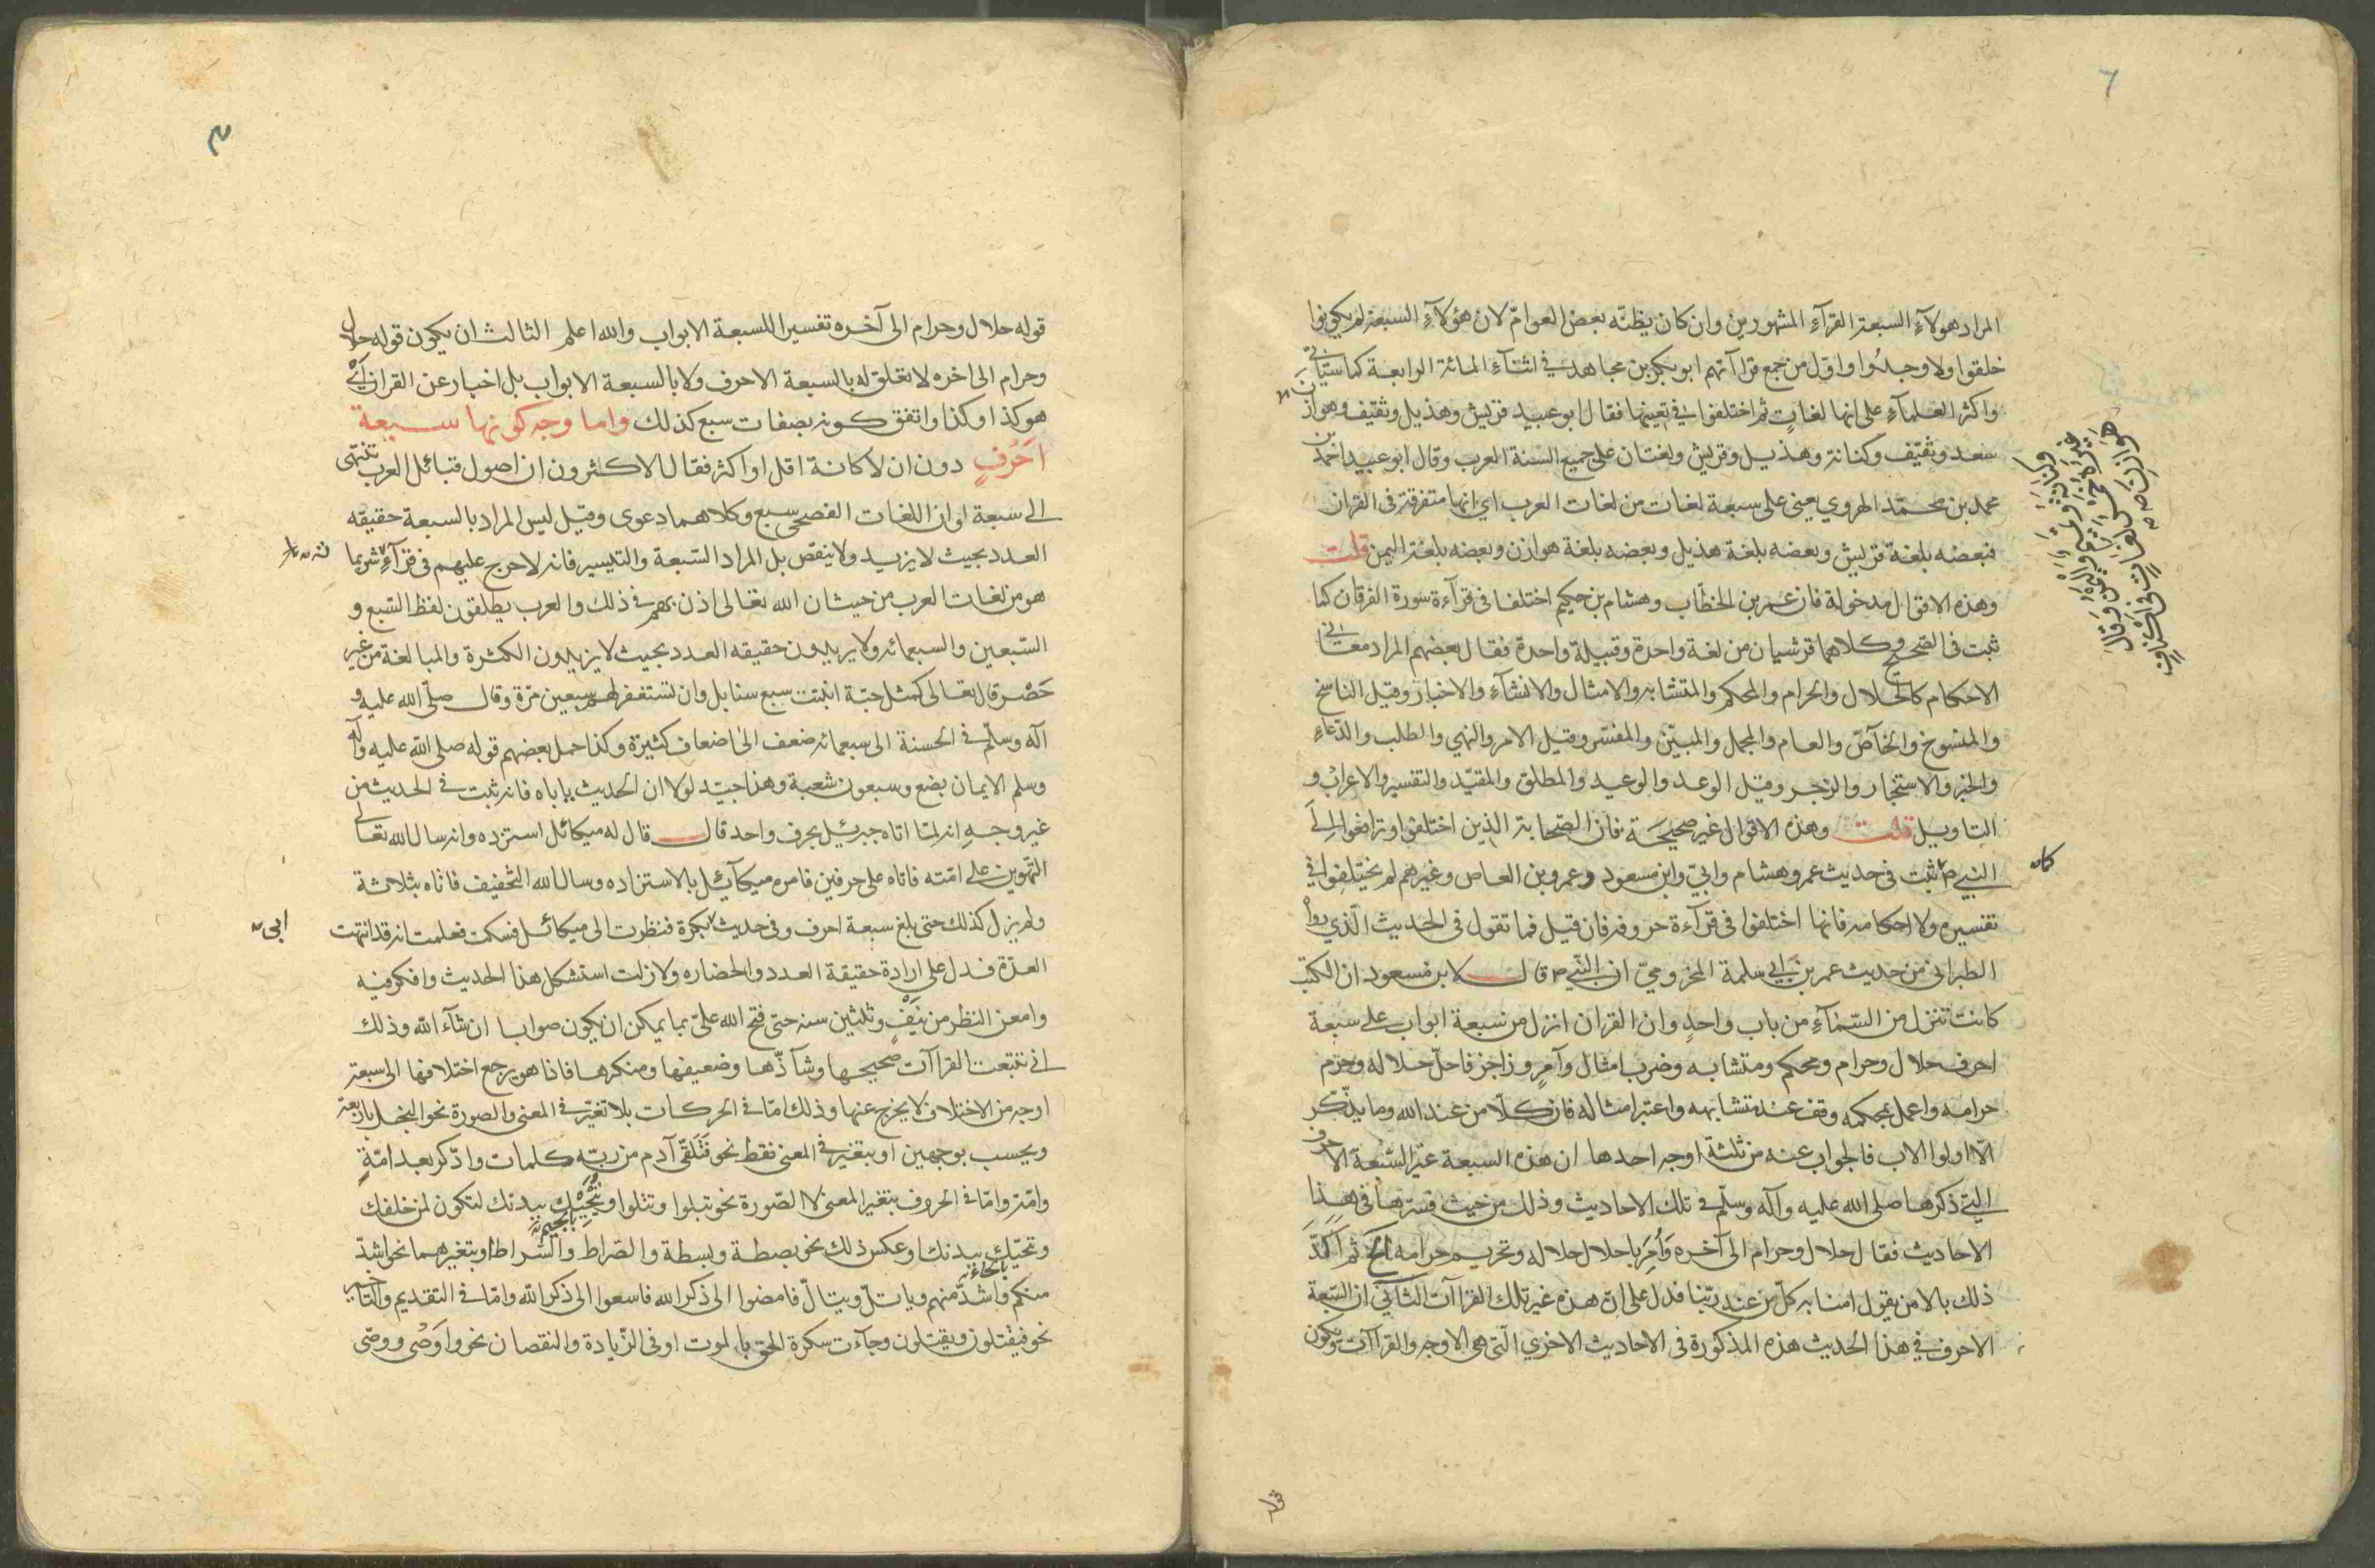 ٦
المراد هولآء السبعة القرآء المشهورين وان كان يظنّه بعض العوامّ لان هؤلآء السبعة لم يكونوا
خلقوا ولا وجدُوا واوّل من جمع قراآتهم ابو بكر بن مجاهد في اثنآء المائة الرابعة كما سيأتي
واكثر العلمآء على انها لغاتٍ ثم اختلفوا في تعيينها فقال ابو عبيد قريش وهذيل وثقيف وهوازن
سعد وثقيف وكنانة وهذيل وقريش ولغتان على جميع السنة العرب وقال ابو عبيد احمد بن
محمد بن محمّد الهروي يعنى على سبعة لغات من لغات العرب اي انها متفرقة فى القران
فبعضه بلغة قريش وبعضه بلغة هذيل وبعضه بلغة هوازن وبعضه بلغة اليمن قلت
وهذه الاقوال مدخولة فان عمر بن الخطّاب وهشام بن حكيم اختلفا فى قرآءة سورة الفرقان كما
ثبت فى الصّحيح وكلاهما قرشيان من لغة واحدة وقبيلة واحدة فقال بعضهم المراد معانى
الاحكام كالحلال والحرام والمحكم والمتشابه والامثال والانشآء والاخبار وقيل الناسخ
والمنسوخ والخآصّ والعام والمجمل والمبيّن والمفسّر وقيل الامر والنهي والطلب والدّعاء
والخبر والاستخبار والزجر وقيل الوعد والوعيد والمطلق والمقيّد والتفسير والاعراب و
التاويل قلت وهذه الاقوال غير صحيحَة فان الصّحابة الذين اختلفوا وترافعوا الى
النبي ص ثبت فى حديث عمر وهشام وابيّ وابن مسعود وعمرو بن العاص وغيرهم لم يختلفوا في
كما
تفسيره ولا احكامه فانها اختلفوا فى قرآءة حروفه فان قيل فما تقول فى الحديث الّذي رواه
الطبرانى من حديث عمر بن ابي سلمة المخزوميّ ان النّبي ص قال لابن مسعود ان الكتب
كانت تنزل من السّمآء من باب واحدٍ وان القران انزل من سبعة ابواب على سبعة
احرف حلال وحرام ومحكم ومتشابه وضرب امثال وآمرٍ وزاجر فاحلّ حلاله وحرّم
حرامه واعمل بمحكمه وقف عند متشابهه واعتبر امثاله فان كلّا من عند الله وما يذّكّر
الّا اولوا الاب فالجواب عنه من ثلثة اوجه احدها ان هذه السبعة غير السّبعة الاحرف
التي ذكرها صلى الله عليه وآله وسلّم في تلك الاحاديث وذلك من حيث فسّرتها فى هذا
الاحاديث فقال حلال وحرام الى آخره وَاُمِرَ باحلال حلاله وتحريم حرامه الخ ثم اكّدَّ
ذلك بالامن يقول امنا به كلّ من عند ربّنا فدل على انّ هذه غير تلك القراآت الثانى ان السّبعة
الاحرف في هذا الحديث هذه المذكورة فى الاحاديث الاخري الّتى هى الاوجه والقراآت ويكون
قوله حلال وحرام الى آخره تفسيرا للسبعة الابواب والله اعلم الثالث ان يكون قوله حلال
وحرام الى اخره لا تعلق له بالسبعة الاحرف ولا بالسبعة الابواب بل اخبار عن القران اَيْ
هو كذا وكذا واتفق كونه بصفات سبع كذلك واما وجه كونها سبعة
احَرْفٍ دون ان لا كانة اقل او اكثر فقال الاكثرون ان اصول قبائل العرب تنتهى
الى سبعة او ان اللغات الفصحى سبع وكلاهما دعوى وقيل ليس المراد بالسبعة حقيقه
العدد بحيث لا يزيد ولا ينقص بل المراد السّبعة والتيسير فانه لا حرج عليهم فى قرآءٍ شر بما
هو من لغات العرب من حيث ان الله تعالى اذن لهم في ذلك والعرب يطلقون لفظ السّبع و
السّبعين والسبعمائه ولا يريدون حقيقه العدد بحيث لا يزيدون الكثرة والمبالغة من غير
حَصْر قال تعالى كمثل حبّة انبتت سبع سنابل وان تستغفر لهم سبعين مرّة وقال صلّى الله عليه و
آله وسلّم في الحسنة الى سبعمائه ضعف الى اضعاف كثيرة وكذا حمل بعضهم قوله صلى الله عليه وآله
وسلم الايمان بضع وسبعون شعبة وهذا جيّد لولا ان الحديث ياباه فانه ثبت في الحديث من
غير وجهِ انه لمّا اتاه جبرئيل بحرف واحد قال قال له ميكائل استزده وانه سال الله تعالى
التّهوين على امّته فاتاه على حرفين فامره ميكآئيل بالاستزاده وسال الله التخفيف فاتاه بثلاثة
ولم يزل كذلك حتى بلغ سبعة احرف وفى حديث بكرة فنظرت الى ميكائل فسكت فعلمت انه قد انتهت
ابى
العدّة فدل على ارادة حقيقة العدد والحضاره ولا زلت استشكل هذا الحديث وافكر فيه
وامعن النظر من نيَفٍ وثلثين سنه حتى فتح الله علىّ بما يمكن ان يكون صوابا ان شآء الله وذلك
انى تتبعت القراآت صحيحها وشآذّها وضعيفها ومنكرها فاذا هو يرجع اختلافها الى سبعة
اوجه من الاختلاف لا يخرج عنها وذلك امّا في الحركات بلا تغيّر في المعنى والصورة نحو البخل باربعة
ويحسب بوجهين او بتغير في المعنى فقط نحو فَتَلَقّى آدم من ربّه كلمات وادّكر بعد امّةٍ
وامّة وامّا في الحروف بتغير المعنى لا الصّورة نحو تبلوا وتتلوا وننجّيك ببدنك لتكون لمن خلفك
بالجيم
وتحيّك ببدنك او عكس ذلك نحو بصطة وبسطة والصّراط والسّراط او بتغيرهما نحو اشدّ
بالحاء
منكم واشدّ منهم وياتلّ ويتالّ فامضوا الى ذكر الله فاسعوا الى ذكر الله وامّا في التقديم والتأخير
نحو فيقتلون ويقتلون وجآءت سكرة الحق بالموت او فى الزّيادة والنقصان نحو وا وَصْى ووصّى